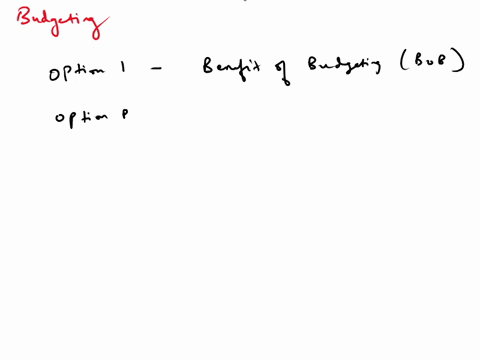 Budgeting
option 1 - Benefit of Budgeting (BOB)
option